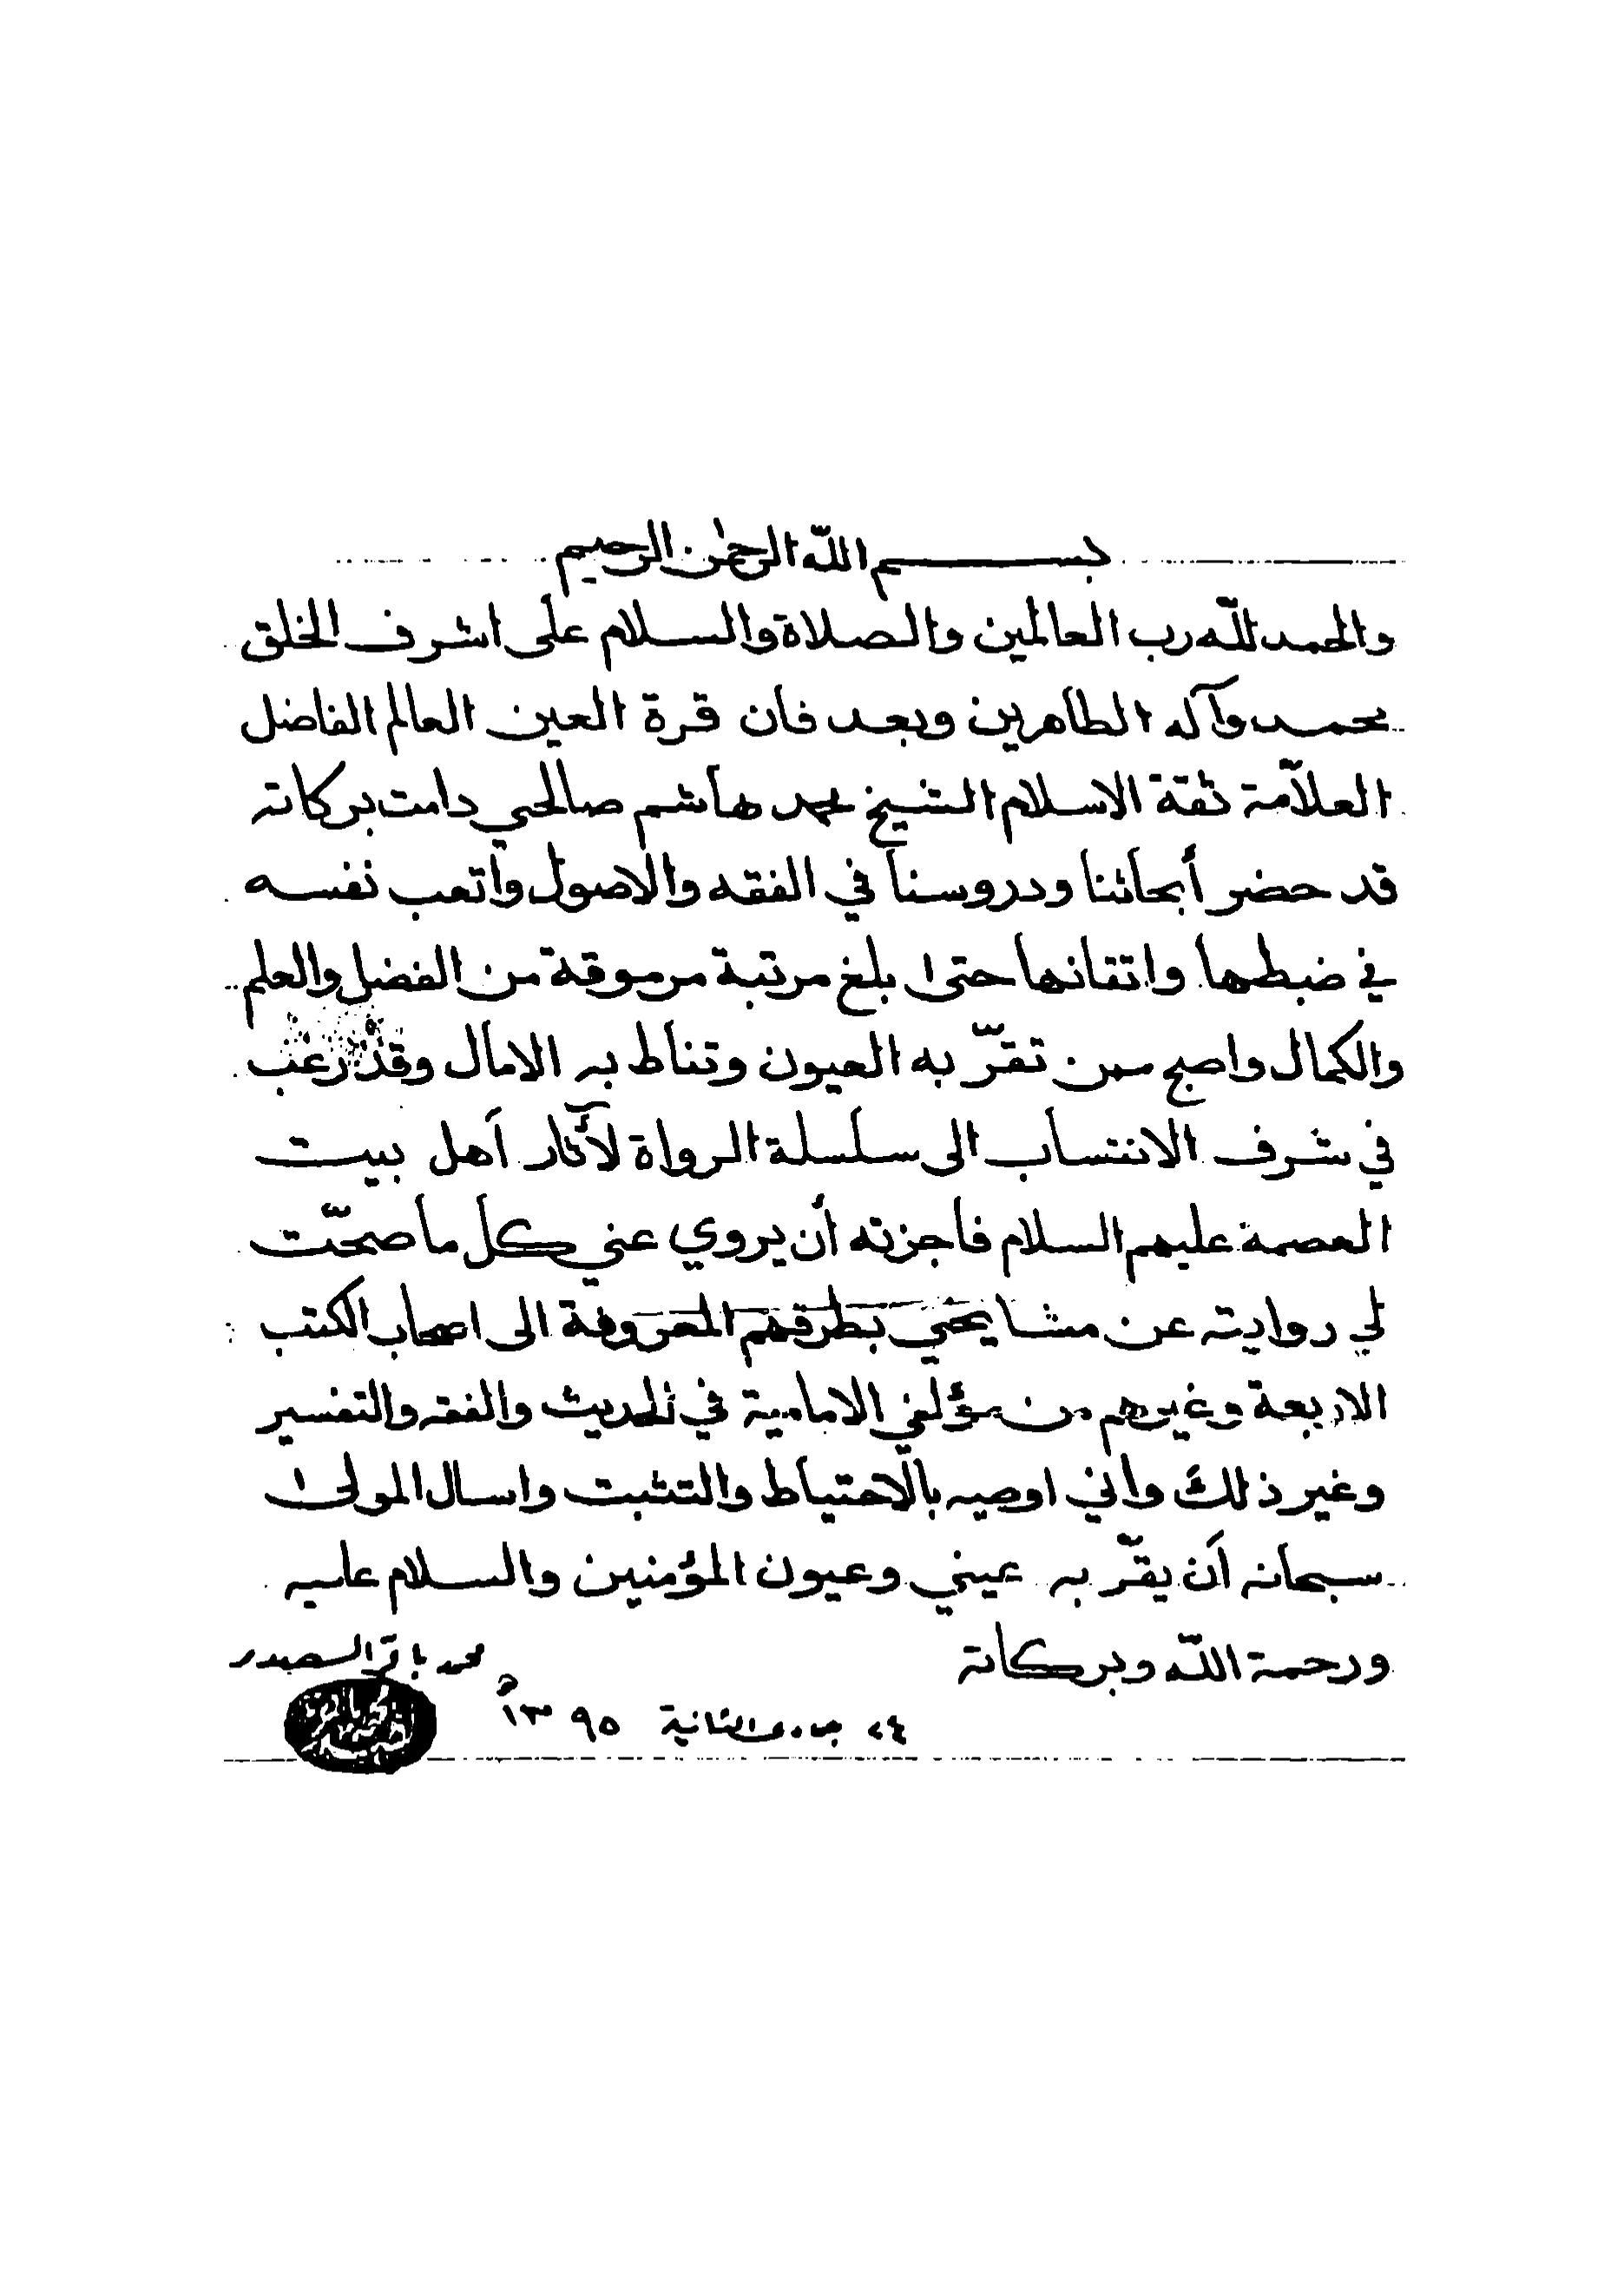 بسم الله الرحمن الرحيم
والحمد لله رب العالمين والصلاة والسلام على اشرف الخلق
محمد وآله الطاهرين وبعد فان قرة العين العالم الفاضل
العلاّمة ثقة الاسلام الشيخ محمد هاشم صالحي دامت بركاته
قد حضر أبحاثنا ودروسنا في الفقه والاصول واتعب نفسه
في ضبطها واتقانها حتى بلغ مرتبة مرموقة من الفضل والعلم
والكمال واصبح ممن تقرّ به العيون وتناط به الامال وقد رغب
في شرف الانتساب الى سلسلة الرواة لآثار أهل بيت
العصمة عليهم السلام فأجزته أن يروي عني كل ما صحّت
لي روايته عن مشايخي بطرقهم المعروفة الى اصحاب الكتب
الاربعة وغيرهم من مؤلفي الامامية في الحديث والفقه والتفسير
وغير ذلك واني اوصيه بالاحتياط والتثبت واسال المولى
سبحانه أن يقرّ به عيني وعيون المؤمنين والسلام عليه
ورحمة الله وبركاته
محمد باقر الصدر
٢٤ جمادى الثانية ١٣٩٥ هـ